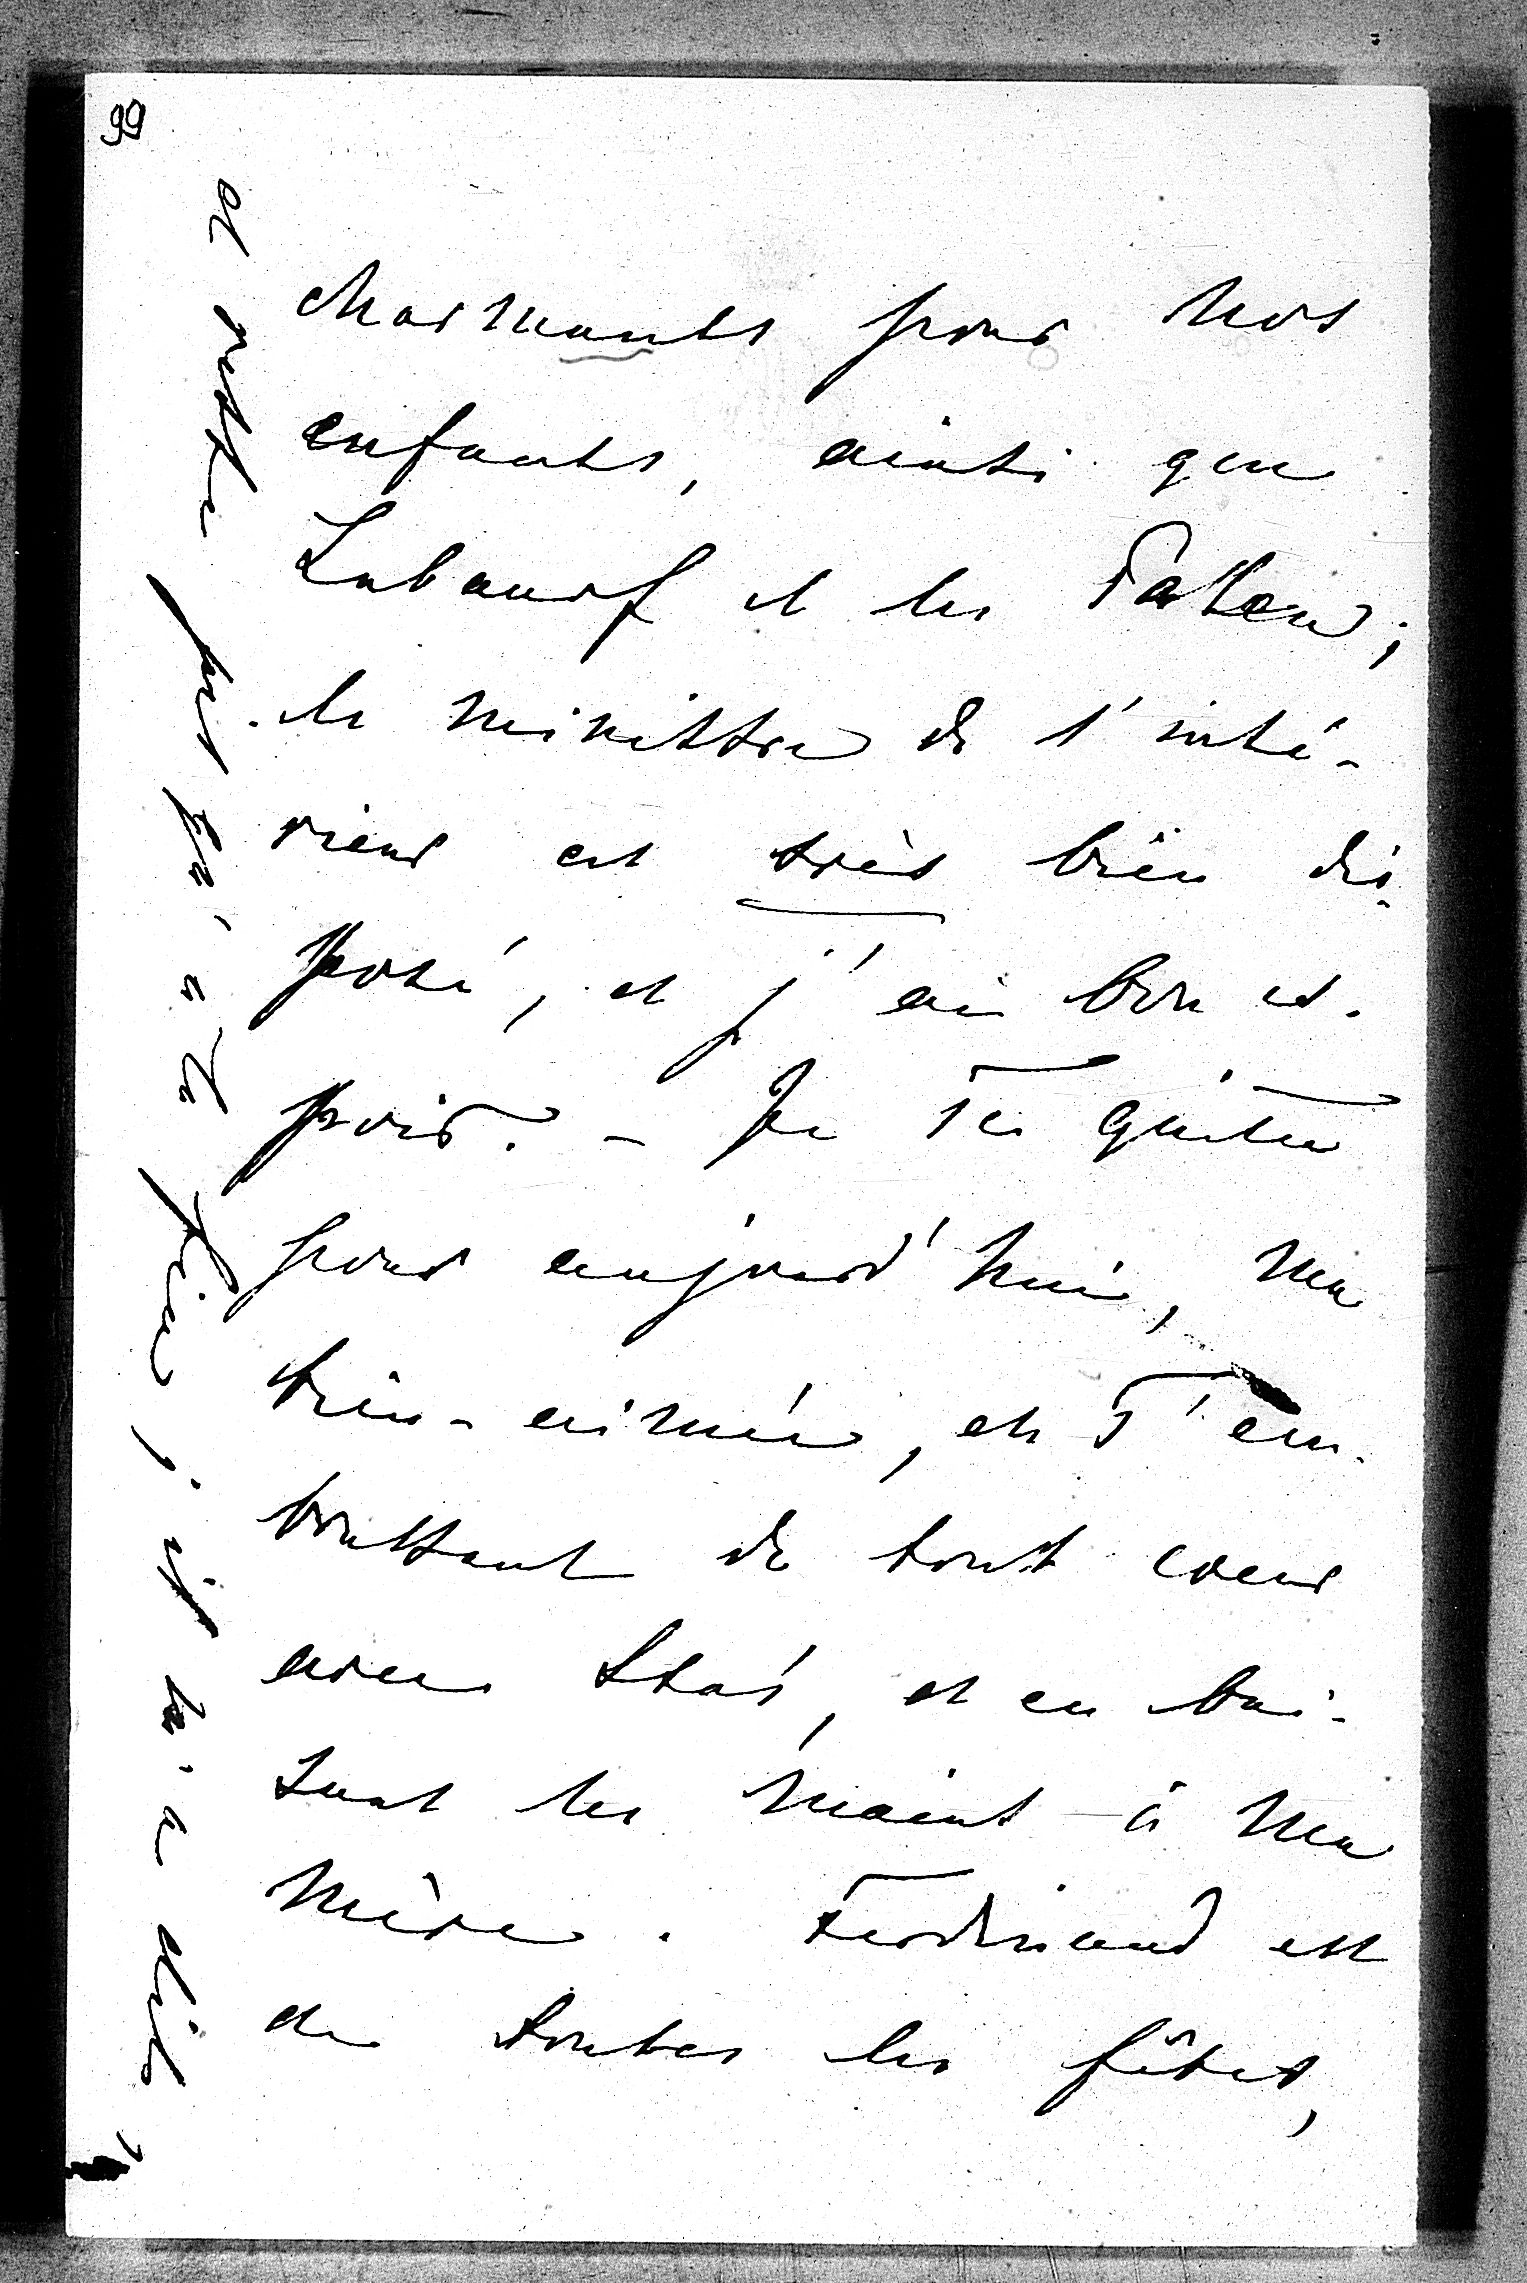 99
charmants pour nos
enfants, ainsi que
Lubaursf et les Pahlen;
le ministre de l'inté-
rieur est très bien dis-
posé, et j'ai bon es-
poir. - Je te quitte
pour aujourd'hui, ma
bien-aimée, en t'em-
brassant de tout coeur
avec Stas, et en bai-
sant les mains à ma
mère. Ferdinand est
de toutes les fêtes,
et reste